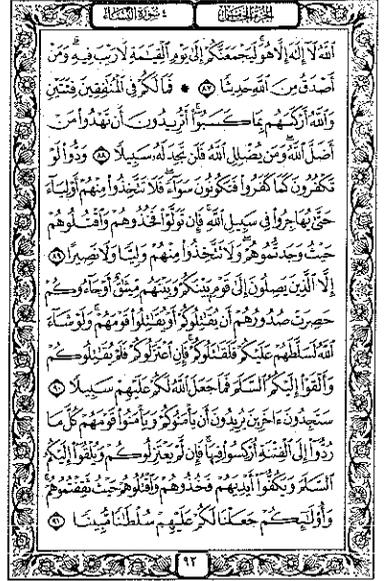 الجزء الخامس ٤ سورة النساء
ٱللَّهُ لَآ إِلَٰهَ إِلَّا هُوَ لَيَجْمَعَنَّكُمْ إِلَىٰ يَوْمِ ٱلْقِيَٰمَةِ لَا رَيْبَ فِيهِ وَمَنْ
أَصْدَقُ مِنَ ٱللَّهِ حَدِيثًا ٨٧ * فَمَا لَكُمْ فِى ٱلْمُنَٰفِقِينَ فِئَتَيْنِ
وَٱللَّهُ أَرْكَسَهُم بِمَا كَسَبُوٓا۟ أَتُرِيدُونَ أَن تَهْدُوا۟ مَنْ
أَضَلَّ ٱللَّهُ وَمَن يُضْلِلِ ٱللَّهُ فَلَن تَجِدَ لَهُۥ سَبِيلًا ٨٨ وَدُّوا۟ لَوْ
تَكْفُرُونَ كَمَا كَفَرُوا۟ فَتَكُونُونَ سَوَآءً فَلَا تَتَّخِذُوا۟ مِنْهُمْ أَوْلِيَآءَ
حَتَّىٰ يُهَاجِرُوا۟ فِى سَبِيلِ ٱللَّهِ فَإِن تَوَلَّوْا۟ فَخُذُوهُمْ وَٱقْتُلُوهُمْ
حَيْثُ وَجَدتُّمُوهُمْ وَلَا تَتَّخِذُوا۟ مِنْهُمْ وَلِيًّا وَلَا نَصِيرًا ٨٩
إِلَّا ٱلَّذِينَ يَصِلُونَ إِلَىٰ قَوْمٍۭ بَيْنَكُمْ وَبَيْنَهُم مِّيثَٰقٌ أَوْ جَآءُوكُمْ
حَصِرَتْ صُدُورُهُمْ أَن يُقَٰتِلُوكُمْ أَوْ يُقَٰتِلُوا۟ قَوْمَهُمْ وَلَوْ شَآءَ
ٱللَّهُ لَسَلَّطَهُمْ عَلَيْكُمْ فَلَقَٰتَلُوكُمْ فَإِنِ ٱعْتَزَلُوكُمْ فَلَمْ يُقَٰتِلُوكُمْ
وَأَلْقَوْا۟ إِلَيْكُمُ ٱلسَّلَمَ فَمَا جَعَلَ ٱللَّهُ لَكُمْ عَلَيْهِمْ سَبِيلًا ٩٠
سَتَجِدُونَ ءَاخَرِينَ يُرِيدُونَ أَن يَأْمَنُوكُمْ وَيَأْمَنُوا۟ قَوْمَهُمْ كُلَّ مَا
رُدُّوٓا۟ إِلَى ٱلْفِتْنَةِ أُرْكِسُوا۟ فِيهَا فَإِن لَّمْ يَعْتَزِلُوكُمْ وَيُلْقُوٓا۟ إِلَيْكُمُ
ٱلسَّلَمَ وَيَكُفُّوٓا۟ أَيْدِيَهُمْ فَخُذُوهُمْ وَٱقْتُلُوهُمْ حَيْثُ ثَقِفْتُمُوهُمْ
وَأُو۟لَٰٓئِكُمْ جَعَلْنَا لَكُمْ عَلَيْهِمْ سُلْطَٰنًا مُّبِينًا ٩١
٩٢